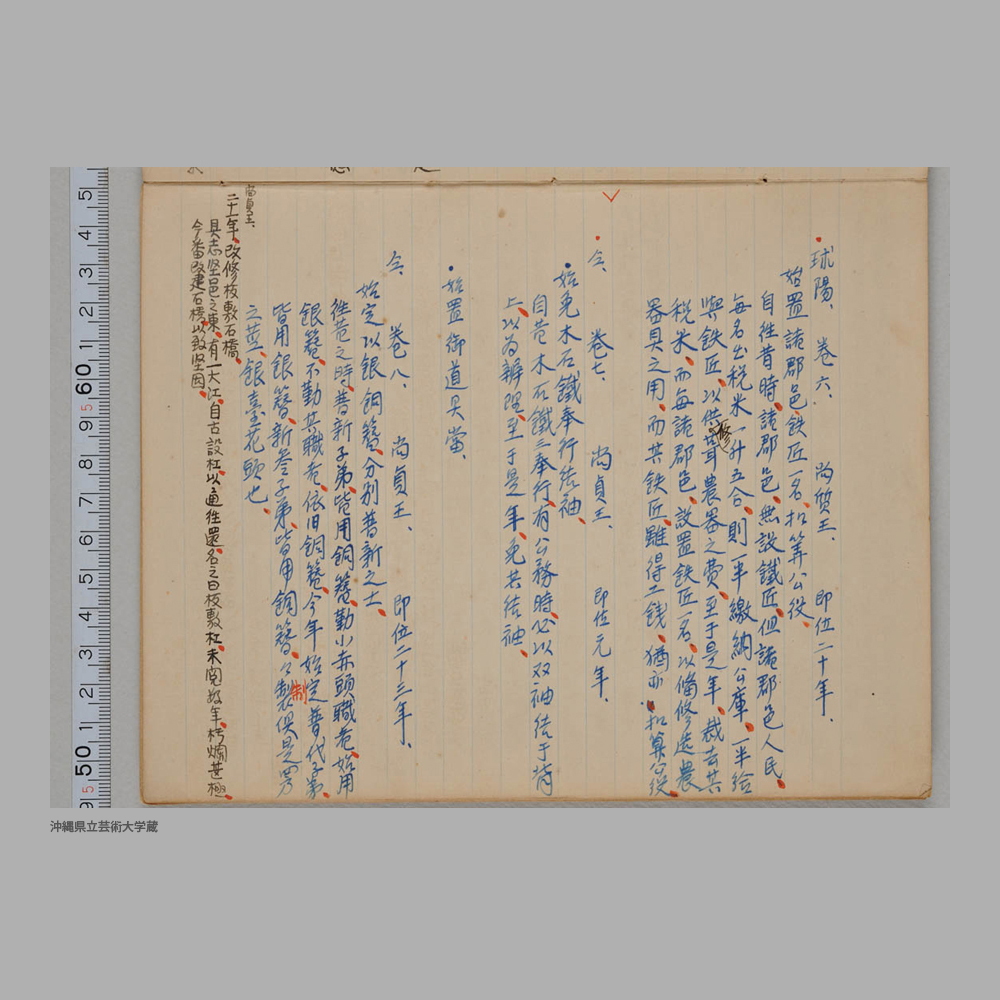 球陽、 卷六、 尚質王、 即位二十年、
始置諸郡邑鉄匠一名、扣筭公役、
自往昔時、諸郡邑、無設鐵匠、但諸郡邑人民、
每名出税米一升五合、則一半繳納公庫、一半給
與鉄匠、以供修茸農器之費、至于是年、裁去其
税米、而每諸郡邑、設置鉄匠一名、以備修造農
器具之用、而其鉄匠、雖得工銭、猶亦扣算公役
仝、 卷七、 尚貞王、 即位元年、
始免木石鐵奉行结袖、
自昔木石鐵三奉行、有公務時、必以双袖结于背
上、以为辨理、至于是年、免其结袖、
始置御道具當、
仝、 卷八、 尚貞王、 即位二十三年、
始定以銀銅簪、分別普新之士、
往昔之時、普新子弟、皆用銅簪、勤小赤頭職者、始用
銀簪、不勤其職者、依旧銅簪、今年始定普代子弟、
皆用銀簪、新參子弟、皆用銅簪、々製倶是為
制
之莖、銀臺花頭也、
尚貞王、
二十一年、改修板敷石橋、
具志堅邑之東、有一大江、自古設杠、以通往還、名之曰板敷杠、未閲数年、朽爛甚極、
今番改建石橋、以致堅固、
5 1 2 3 4 60 1 5 9 8 7 6 5 4 3 2 1 50 5 9
沖縄県立芸術大学蔵